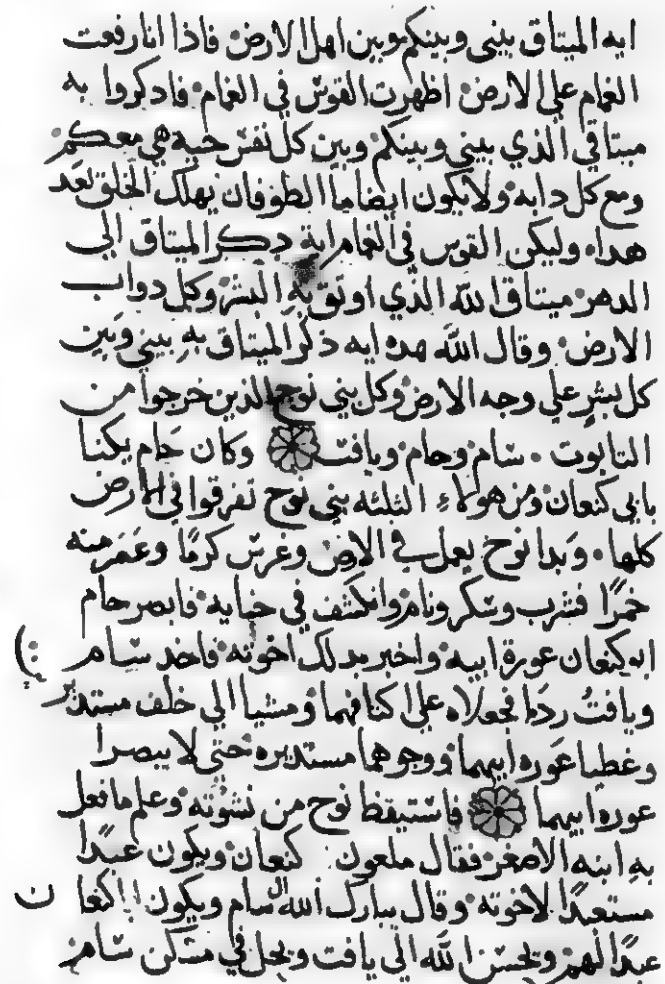 ايه الميتاق بيني وبينكم وبين اهل الارض فاذا انا رفعت
الغمام علي الارض اظهرت القوس في الغمام فادكروا به
ميتاقي الذي بيني وبينكم وبين كل نفس حيه هي معكم
ومع كل دابه ولا يكون ايضا ما الطوفان يهلك الخلق بعد
هدا وليكن القوس في الغمام اية دكر الميتاق الي
الدهر ميتاق الله الذي اوتق به البشر وكل دواب
الارض وقال الله هده ايه ذكر الميتاق به بيني وبين
كل بشر علي وجه الارض وكل بني نوح الذين خرجوا من
التابوت سام وحام ويافت وكان حام يكنا
بابي كنعان ومن هولاء الثلثه بني نوح تفرقوا في الارض
كلها وبدا نوح يعمل في الارض وغرس كرمًا وعصر منه
خمرًا فشرب وسكر ونام وانكشف في خبايه فابصر حام
ابو كنعان عورة ابيه واخبر بدلك اخوته فاخد سام
ويافت ردا فجعلاه علي اكتافهما ومشيا الي خلف مستدبرين
وغطيا عوره ابيهما ووجوهما مستديره حتي لا يبصرا
عوره ابيهما فاستيقظ نوح من نشوته وعلم ما فعل
به ابنه الاصغر فقال ملعون كنعان ويكون عبدًا
مستعبدًا لاخوته وقال يبارك الله ال سام ويكون كنعان
عبدًا لهم ويحسن الله الي يافت ويحل في مسكن سام